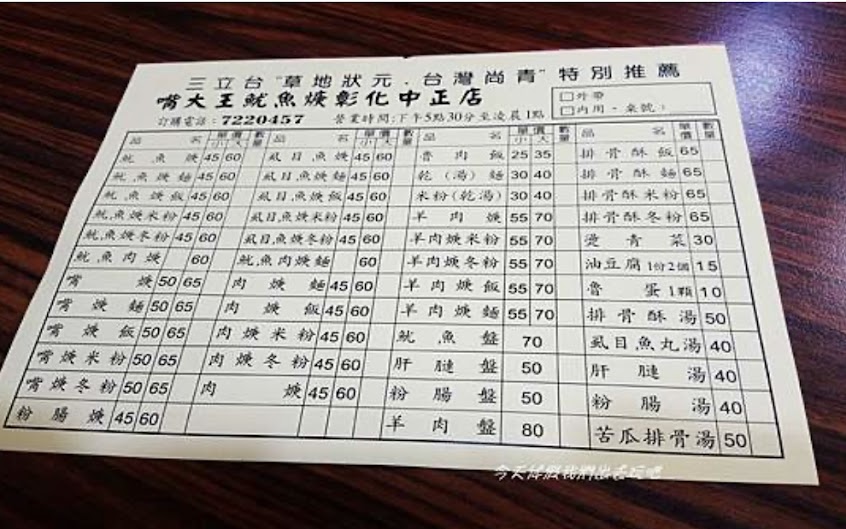 三立台"草地狀元．台灣尚青"特別推薦
嘴大王魷魚焿彰化中正店
訂購電話：7220457 營業時間：下午5點30分至凌晨1點
□外帶
□內用・桌號：
品名 單價 小 大 數量 品名 單價 小 大 數量 品名 單價 小 大 數量 品名 單價 數量
魷魚焿 45 60 虱目魚焿 45 60 魯肉飯 25 35 排骨酥飯 65
魷魚焿麵 45 60 虱目魚焿麵 45 60 乾(湯)麵 30 40 排骨酥麵 65
魷魚焿飯 45 60 虱目魚焿飯 45 60 米粉(乾湯) 30 40 排骨酥米粉 65
魷魚焿米粉 45 60 虱目魚焿米粉 45 60 羊肉焿 55 70 排骨酥冬粉 65
魷魚焿冬粉 45 60 虱目魚焿冬粉 45 60 羊肉焿米粉 55 70 燙青菜 30
魷魚肉焿 60 魷魚肉焿麵 60 羊肉焿冬粉 55 70 油豆腐1份2個 15
嘴焿 50 65 肉焿麵 45 60 羊肉焿飯 55 70 魯蛋1顆 10
嘴焿麵 50 65 肉焿飯 45 60 羊肉焿麵 55 70 排骨酥湯 50
嘴焿飯 50 65 肉焿米粉 45 60 魷魚盤 70 虱目魚丸湯 40
嘴焿米粉 50 65 肉焿冬粉 45 60 肝腱盤 50 肝腱湯 40
嘴焿冬粉 50 65 肉焿 45 60 粉腸盤 50 粉腸湯 40
粉腸焿 45 60 羊肉盤 80 苦瓜排骨湯 50
今天休假我們出去玩吧